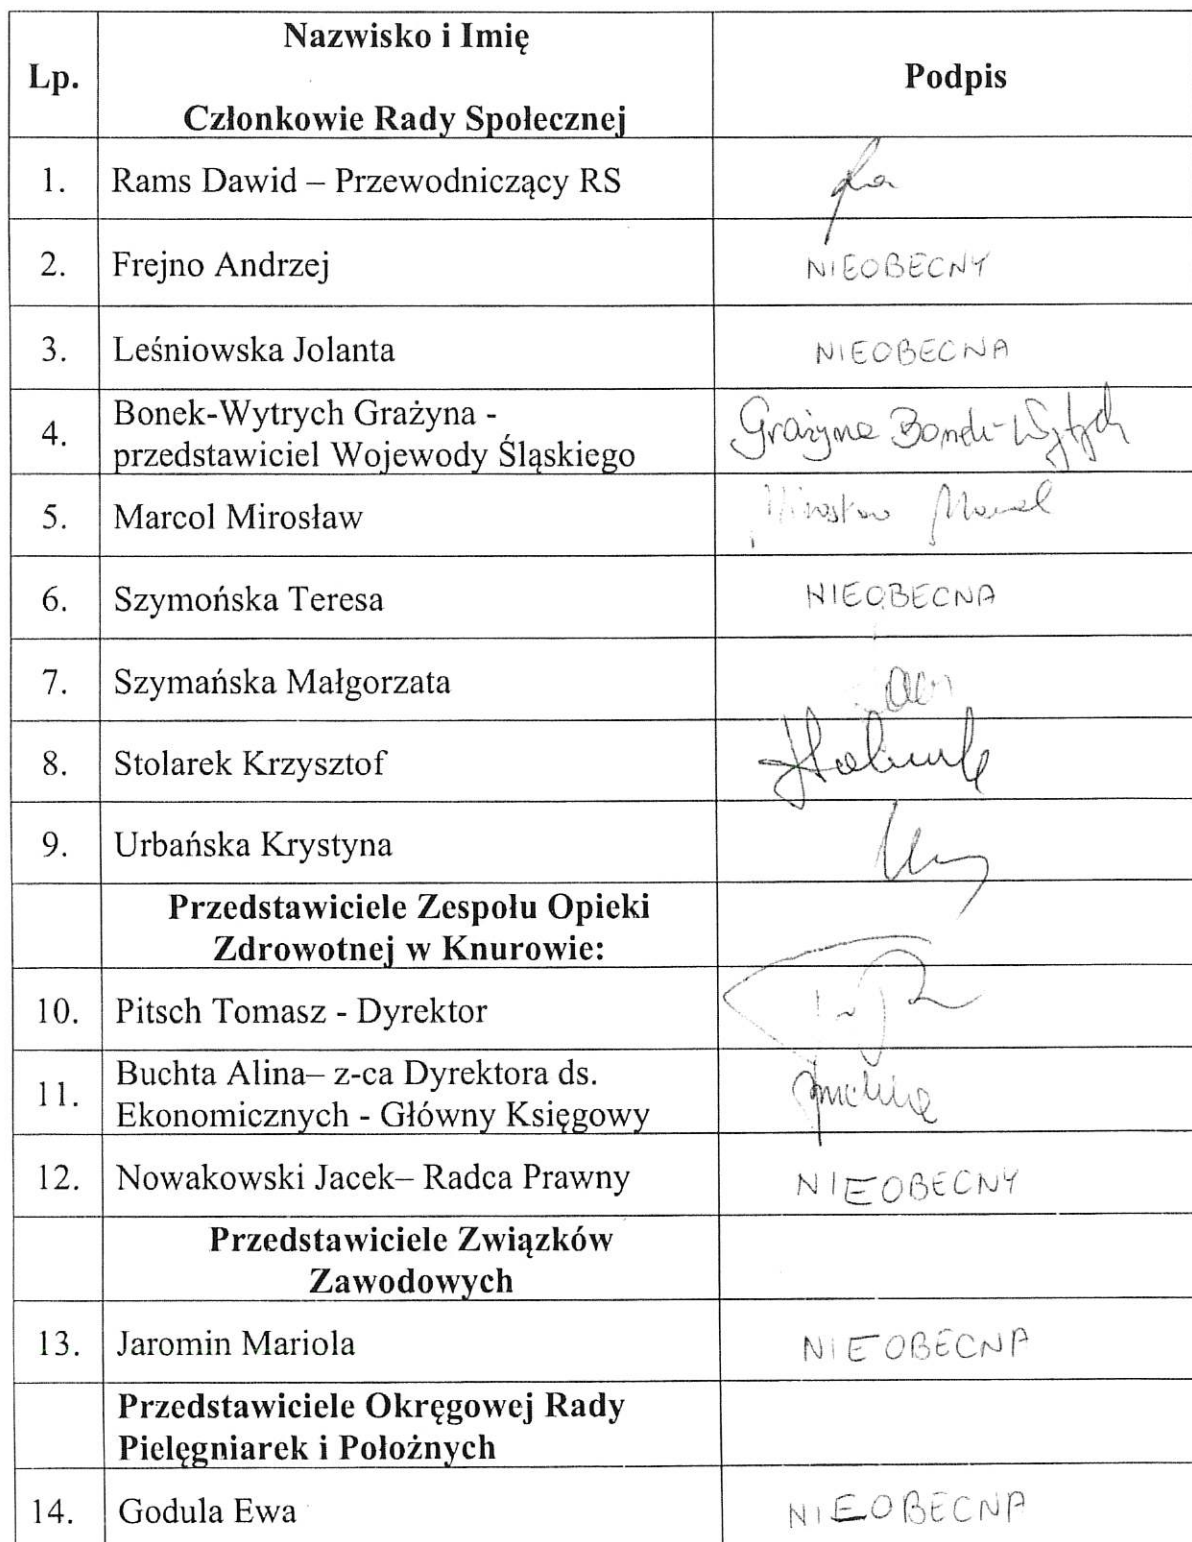 Lp.
Nazwisko i Imię
Członkowie Rady Społecznej
Podpis
1. Rams Dawid – Przewodniczący RS
2. Frejno Andrzej NIEOBECNY
3. Leśniowska Jolanta NIEOBECNA
4. Bonek-Wytrych Grażyna - Grażyna Bonek-Wytrych
przedstawiciel Wojewody Śląskiego
5. Marcol Mirosław Mirosław Marcol
6. Szymońska Teresa NIEOBECNA
7. Szymańska Małgorzata
8. Stolarek Krzysztof
9. Urbańska Krystyna
Przedstawiciele Zespołu Opieki
Zdrowotnej w Knurowie:
10. Pitsch Tomasz - Dyrektor
11. Buchta Alina– z-ca Dyrektora ds.
Ekonomicznych - Główny Księgowy
12. Nowakowski Jacek– Radca Prawny NIEOBECNY
Przedstawiciele Związków
Zawodowych
13. Jaromin Mariola NIEOBECNA
Przedstawiciele Okręgowej Rady
Pielęgniarek i Położnych
14. Godula Ewa NIEOBECNA